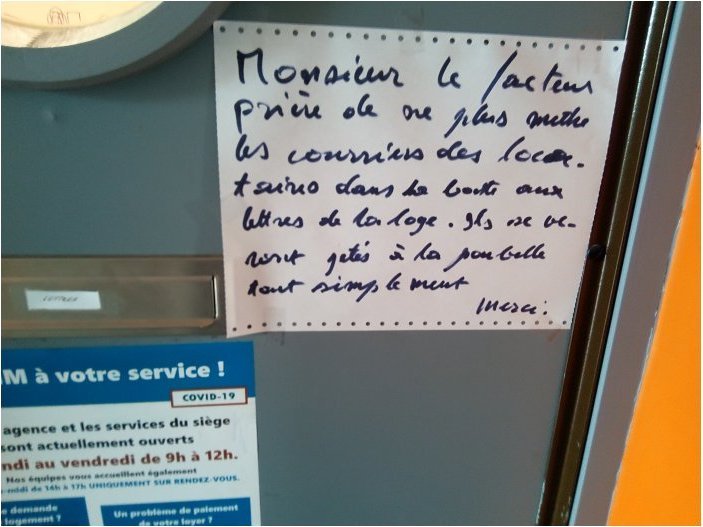 Monsieur le facteur
prière de ne plus mettre
les courriers des loca-
taires dans la boite aux
lettres de la loge. Ils se ve-
ront getés à la poubelle
tout simplement
Merci.
LETTRES
M à votre service !
COVID-19
agence et les services du siège
sont actuellement ouverts
ndi au vendredi de 9h à 12h.
Nos équipes vous accueillent également
-midi de 14h à 17h UNIQUEMENT SUR RENDEZ-VOUS.
e demande
logement ?
Un problème de paiement
de votre loyer ?